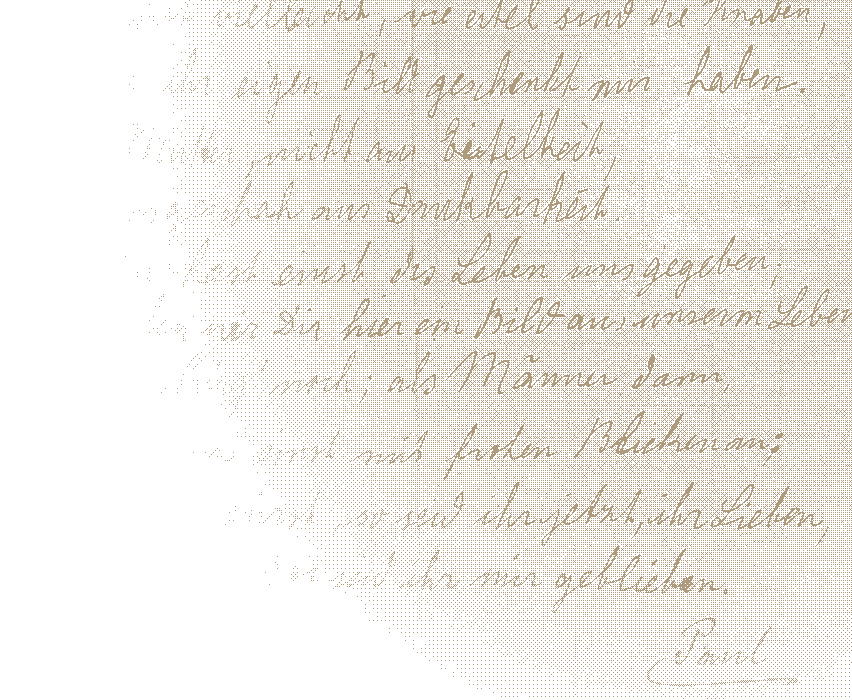 vielleicht, wie eitel sind die Knaben,
ihr eigen Bild geschenkt mir haben.
Mutter, nicht aus Eitelkeit,
geschah aus Dankbarkeit.
hast einst das Leben uns gegeben;
wir Dir hier ein Bild aus unserm Leben
noch; als Männer dann,
einst mit frohen Blicken an;
einst, so seid ihr jetzt, ihr Lieben,
seid ihr mir geblieben.
Paul